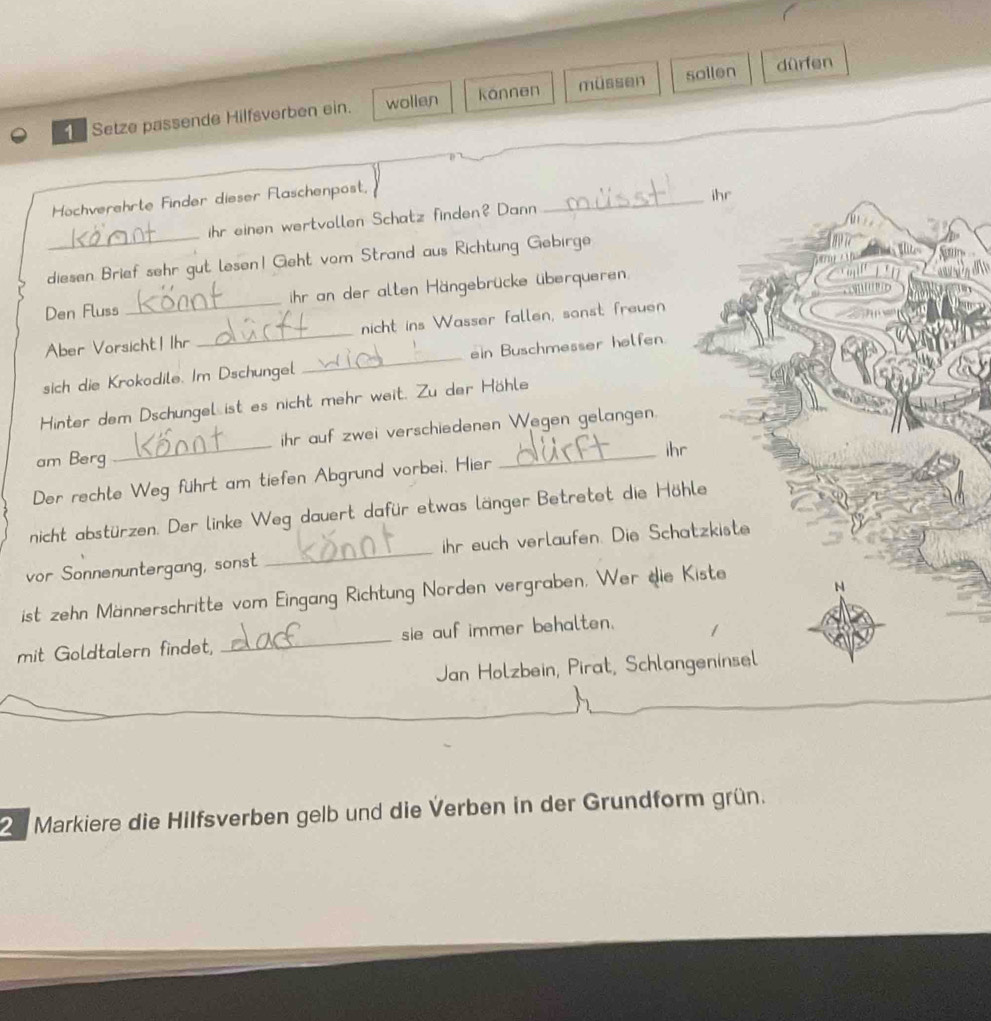 1 Setze passende Hilfsverben ein. wollen können müssen sollen dürfen
Hochverehrte Finder dieser Flaschenpost,
könnt ihr einen wertvollen Schatz finden? Dann müsst ihr
diesen Brief sehr gut lesen! Geht vom Strand aus Richtung Gebirge
Den Fluss könnt ihr an der alten Hängebrücke überqueren.
Aber Vorsicht! Ihr dürft nicht ins Wasser fallen, sonst freuen
sich die Krokodile. Im Dschungel wird ein Buschmesser helfen.
Hinter dem Dschungel ist es nicht mehr weit. Zu der Höhle
am Berg könnt ihr auf zwei verschiedenen Wegen gelangen.
Der rechte Weg führt am tiefen Abgrund vorbei. Hier dürft ihr
nicht abstürzen. Der linke Weg dauert dafür etwas länger Betretet die Höhle
vor Sonnenuntergang, sonst könnt ihr euch verlaufen. Die Schatzkiste
ist zehn Männerschritte vom Eingang Richtung Norden vergraben. Wer die Kiste
mit Goldtalern findet, darf sie auf immer behalten.
Jan Holzbein, Pirat, Schlangeninsel
N
2 Markiere die Hilfsverben gelb und die Verben in der Grundform grün.